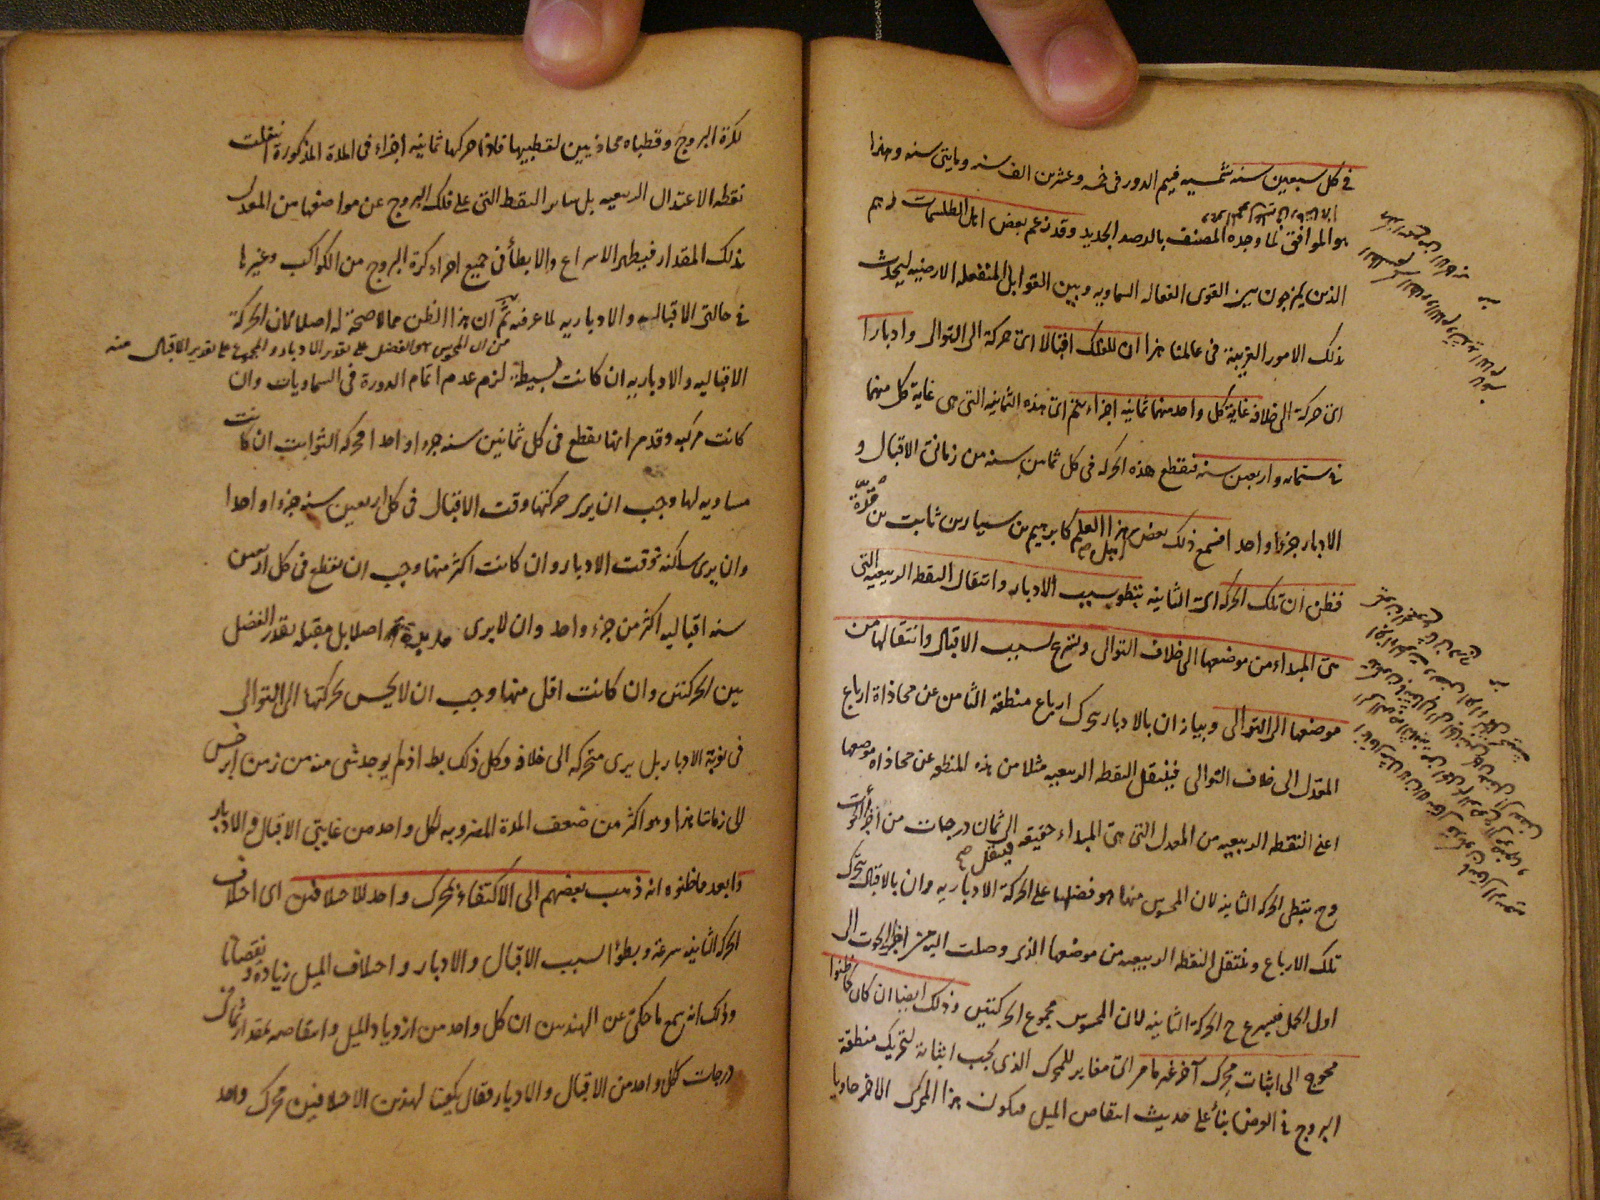 في كل سبعين سنة شمسية فيتم الدور في خمسة وعشرين الف سنة ومايتي سنة وهذا
هو الموافق لما وجده المصنف بالرصد الجديد وقد زعم بعض اهل الطلسمات وهم
الذين يمزجون بين القوى الفعالة السماوية وبين القوابل المنفعلة الارضية ليحدث
بذلك الامور الغريبة في عالمنا هذا ان للفلك اقبالا اي حركة الى التوالي وادبارا
اي حركة الى خلافه غاية كل واحد منهما ثمانية اجزاء يتم اي هذه الثمانية التي هي غاية كل منهما
في ستمائة واربعين سنة فيقطع هذه الحركة في كل ثمانين سنة من زماني الاقبال و
الادبار جزءا واحدا فسمع ذلك بعض اهل هذا العلم كابرهيم بن سيار بن ثابت بن قرة
فظن ان تلك الحركة اي الثانية تبطؤ بسبب الادبار وانتقال النقطة الربيعية التي
هي المبداء من موضعها الى خلاف التوالي وتسرع بسبب الاقبال وانتقالها من
موضعها الى التوالي وبيانه ان بالادبار يتحرك ارباع منطقة الثامن عن محاذاة ارباع
المعدل الى خلاف التوالي فينتقل النقطة الربيعية مثلا من هذه المنطقة عن محاذاة موضعها
اعني النقطة الربيعية من المعدل التي هي المبداء حقيقة الى ثمان درجات من اجزاء الحوت
وح تبطئ الحركة الثانية لان المحسوس منها هو فضلها على الحركة الادبارية وان بالاقبال يتحرك
تلك الارباع وينتقل النقطة الربيعية من موضعها الذي وصلت اليه من اجزاء الحوت الى
اول الحمل فيسرع ح الحركة الثانية لان المحسوس مجموع الحركتين وذلك ايضا ان كان كما ظنوا
محوج الى اثبات محرك آخر غير ما مر اي مغاير للمحرك الذي يجب اثباته لتحريك منطقة
البروج في العرض بناء على حديث انتقاص الميل فيكون هذا المحرك الاخر حاويا
لكرة البروج وقطباه محاذيين لقطبيها فاذا حركها ثمانية اجزاء في المدة المذكورة انتقلت
نقطة الاعتدال الربيعية بل سائر النقط التي على فلك البروج عن مواضعها من المعدل
بذلك المقدار فيظهر الاسراع والابطاء في جميع اجزاء كرة البروج من الكواكب وغيرها
في حالتي الاقبالية والادبارية لما عرفته ثم ان هذا الظن مما لا صحة له اصلا لان الحركة
من ان المحسوس هي الفضل على تقدير الادبار والمجموع على تقدير الاقبال منه
الاقبالية والادبارية ان كانت بسيطة لزم عدم اتمام الدورة في السماويات وان
كانت مركبة وقد مر انها يقطع في كل ثمانين سنة جزءا واحدا فحركة الثوابت ان كانت
مساوية لها وجب ان يرى حركتها وقت الاقبال في كل اربعين سنة جزءا واحدا
وان يرى ساكنة وقت الادبار وان كانت اكثر منها وجب ان يقطع في كل اربعين
سنة اقبالية اكثر من جزء واحد وان لا يرى مدبرة اصلا بل مقبلة بقدر الفضل
بين الحركتين وان كانت اقل منها وجب ان لا يحس بحركتها الى التوالي
في نوبة الادبار بل يرى متحركة الى خلافه وكل ذلك بط اذ لم يوجد شي منه من زمن ابرخس
الى زماننا هذا وهو اكثر من ضعف المدة المضروبة لكل واحد من غايتي الاقبال والادبار
وابعد ما ظنوه انه ذهب بعضهم الى الاكتفاء بمحرك واحد للاختلافين اي اختلاف
الحركة الثانية سرعة وبطؤا بسبب الاقبال والادبار واختلاف الميل زيادة ونقصانا
وذلك انه سمع ما حكي عن الهند من ان كل واحد من ازدياد الميل وانتقاصه بمقدار ثمان
درجات ككل واحد من الاقبال والادبار فقال يكفينا لهذين الاختلافين محرك واحد